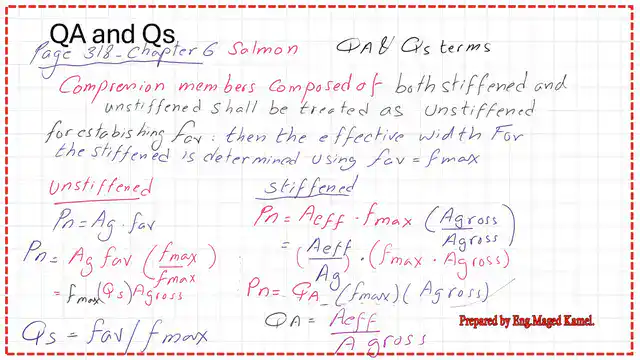 QA and Qs
Page 318-Chapter 6 Salmon QA & Qs terms
Compression members composed of both stiffened and
unstiffened shall be treated as unstiffened
for estabishing fav: then the effective width For
the stiffened is determined using fav = fmax
unstiffened
Pn = Ag . fav
Pn = Ag fav (fmax/fmax)
= fmax (Qs) Agross
Qs = fav/fmax
stiffened
Pn = Aeff . fmax (Agross/Agross)
= (Aeff/Ag) . (fmax . Agross)
Pn = QA (fmax) (Agross)
QA = Aeff/Agross
Prepared by Eng.Maged Kamel.